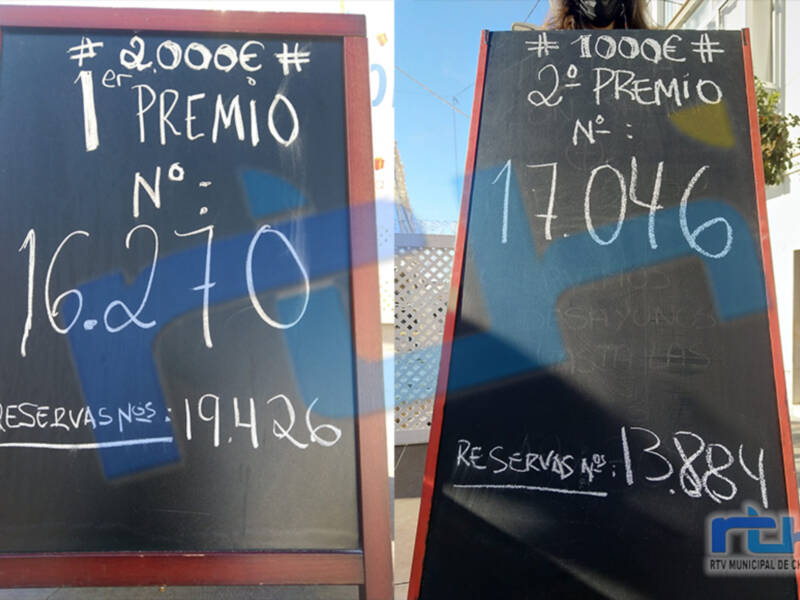 # 2.000€ #
1er PREMIO
Nº:
16.270
RESERVAS Nos: 19.426
# 1000€ #
2º PREMIO
Nº:
17.046
DESAYUNOS
RESERVAS Nos: 13.884
RTV MUNICIPAL DE CH